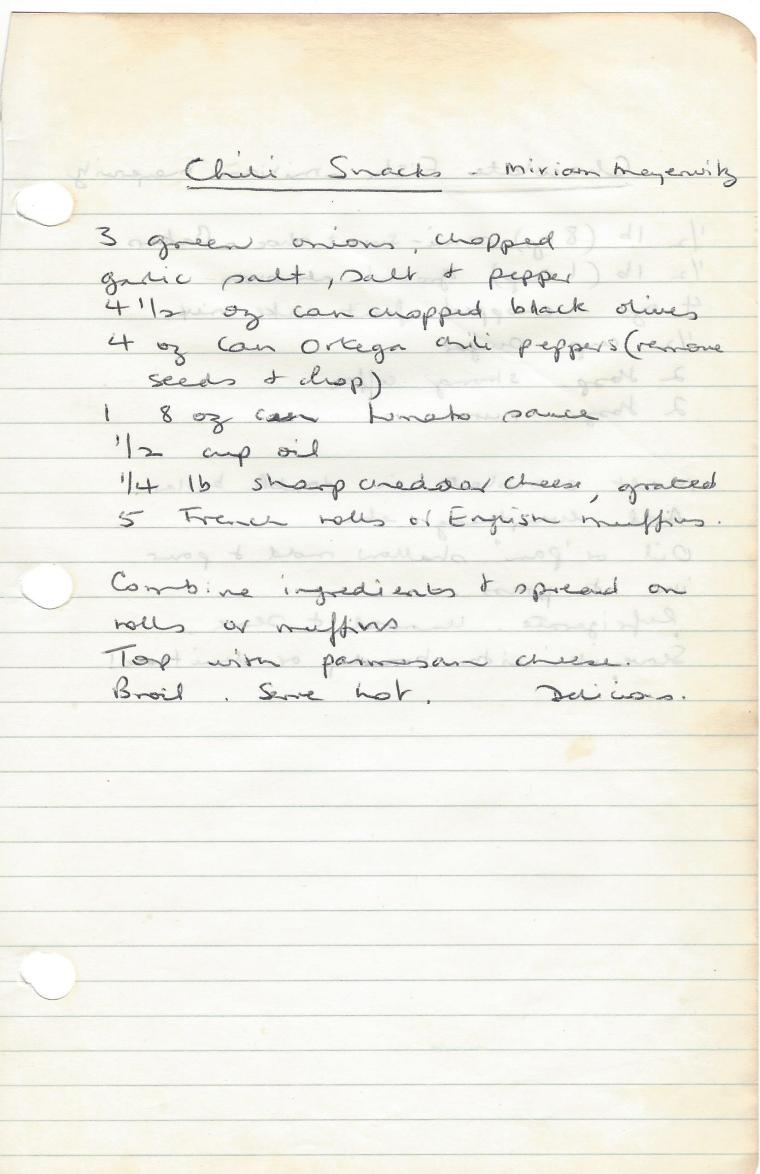 Chili Snacks - Miriam Meyerwitz
3 green onions, chopped
garlic salt, salt & pepper
4 1/2 oz can chopped black olives
4 oz can Ortega chili peppers (remove
seeds & chop)
1 8 oz can tomato sauce
1/2 cup oil
1/4 lb sharp cheddar cheese, grated
5 French rolls or English muffins.
Combine ingredients & spread on
rolls or muffins
Top with parmesan cheese.
Broil. Serve hot. Delicious.